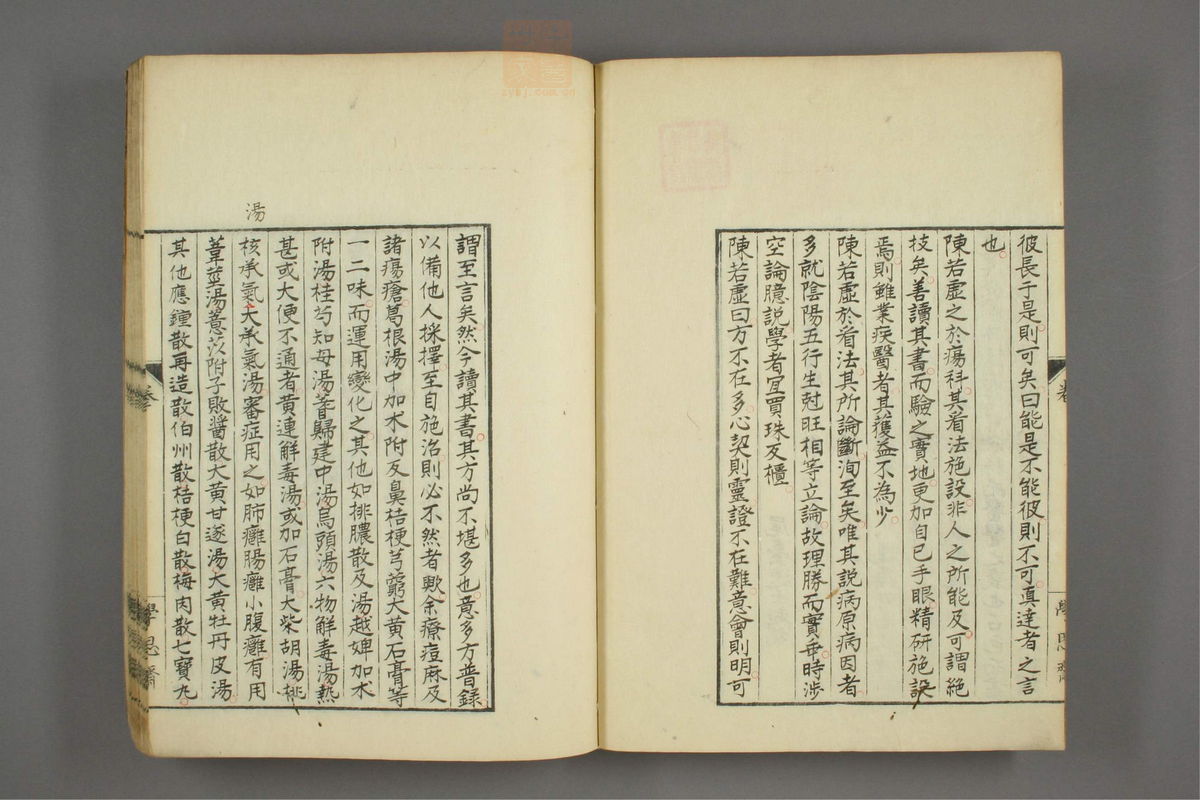 彼長于是則可矣曰能是不能彼則不可真達者之言
也
陳若虛之於瘍科其看法施設非人之所能及可謂絕
技矣善讀其書而驗之實地更加自己手眼精研施設
焉則雖業疾醫者其獲益不為少
陳若虛於看法其所論斷洵至矣唯其說病原病因者
多就陰陽五行生尅旺相等立論故理勝而實乖時涉
空論臆說學者宜買珠反櫃
陳若虛曰方不在多心契則靈證不在難意會則明可
學思齋
謂至言矣然今讀其書其方尚不堪多也意多方普錄
以備他人採擇至自施治則必不然者歟余療痘麻及
諸瘍瘡葛根湯中加朮附反鼻桔梗芎藭大黃石膏等
一二味而運用變化之其他如排膿散及湯越婢加朮
附湯桂芍知母湯耆歸建中湯烏頭湯六物解毒湯熱
甚或大便不通者黃連解毒湯或加石膏大柴胡湯桃
核承氣大承氣湯審症用之如肺癰腸癰小腹癰有用
湯
葦莖湯薏苡附子敗醬散大黃甘遂湯大黃牡丹皮湯
其他應鐘散再造散伯州散桔梗白散梅肉散七寶丸
卷
學思齋
zysj.com.cn